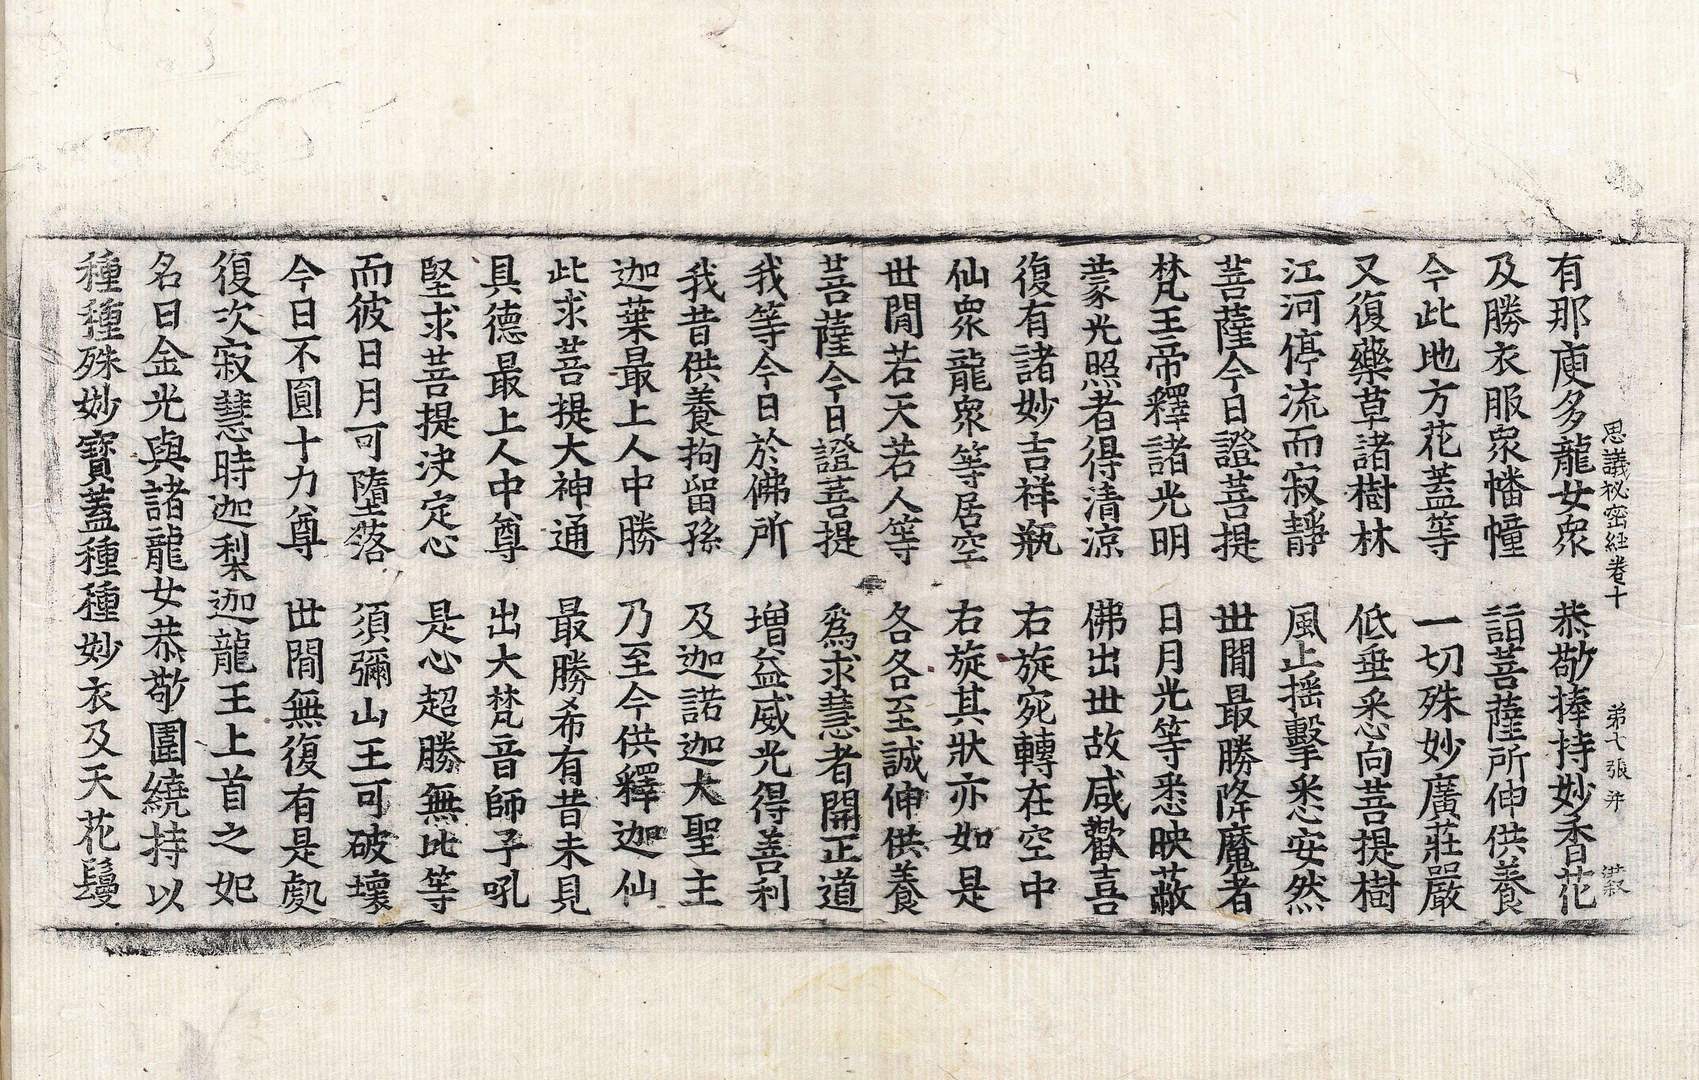 思議祕密經卷十 第七張 弁 洪叙
有那庾多龍女衆 恭敬捧持妙香花
及勝衣服衆幡幢 詣菩薩所伸供養
今此地方花蓋等 一切殊妙廣莊嚴
又復藥草諸樹林 低垂悉向菩提樹
江河停流而寂靜 風止揺擊悉安然
菩薩今日證菩提 世間最勝降魔者
梵王帝釋諸光明 日月光等悉映蔽
蒙光照者得清涼 佛出世故咸歡喜
復有諸妙吉祥瓶 右旋宛轉在空中
仙衆龍衆等居空 右旋其狀亦如是
世閒若天若人等 各各至誠伸供養
菩薩今日證菩提 爲求慧者開正道
我等今日於佛所 增益威光得善利
我昔供養拘留孫 及迦諾迦大聖主
迦葉最上人中勝 乃至今供釋迦仙
此求菩提大神通 最勝希有昔未見
具德最上人中尊 出大梵音師子吼
堅求菩提決定心 是心超勝無比等
而彼日月可墮落 須彌山王可破壞
今日不圓十力尊 世間無復有是處
復次寂慧時迦梨迦龍王上首之妃
名曰金光與諸龍女恭敬圍繞持以
種種殊妙寶蓋種種妙衣及天花鬘